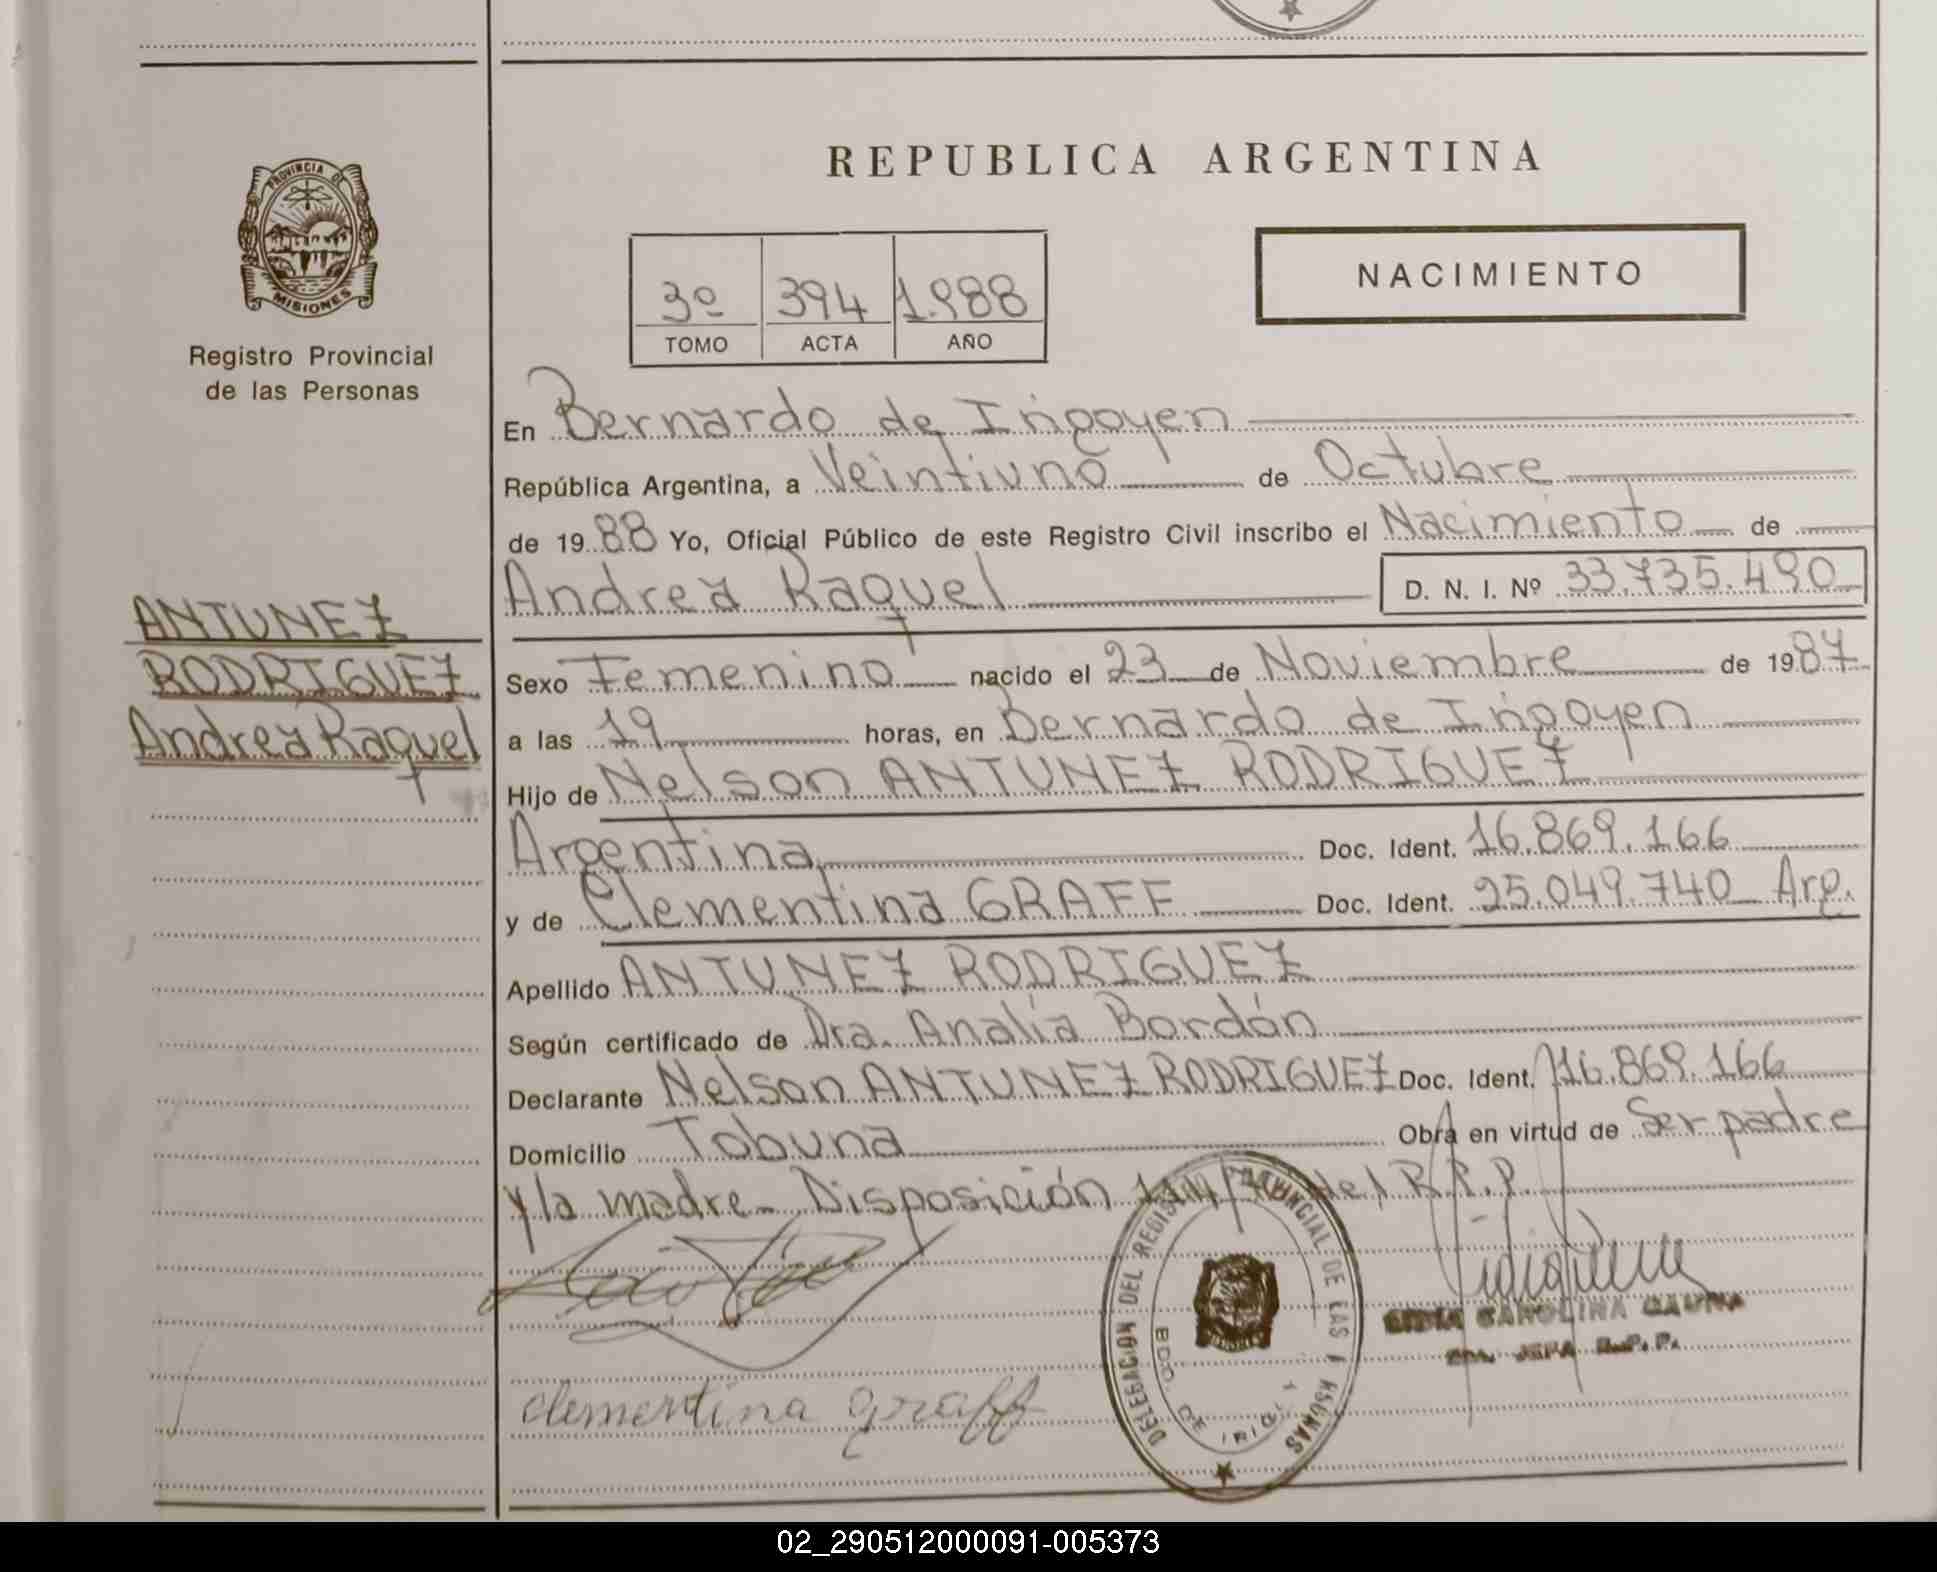 REPUBLICA ARGENTINA
PROVINCIA DE
MISIONES
Registro Provincial
de las Personas
3º 394 1.988
TOMO ACTA AÑO
NACIMIENTO
En Bernardo de Irigoyen
República Argentina, a Veintiuno de Octubre
de 1988 Yo, Oficial Público de este Registro Civil inscribo el Nacimiento de
Andrea Raquel D. N. I. Nº 33.735.490
ANTUNEZ
RODRIGUEZ
Andrea Raquel
Sexo Femenino nacido el 23 de Noviembre de 1987
a las 19 horas, en Bernardo de Irigoyen
Hijo de Nelson ANTUNEZ RODRIGUEZ
Argentina Doc. Ident. 16.869.166
y de Clementina GRAFF Doc. Ident. 25.049.740 Arg.
Apellido ANTUNEZ RODRIGUEZ
Según certificado de Dra. Analía Bordón
Declarante Nelson ANTUNEZ RODRIGUEZ Doc. Ident. 16.869.166
Domicilio Tobuna Obra en virtud de Ser padre
y la madre. Disposición del R.P.P.
DELEGACION DEL REGISTRO PROVINCIAL DE LAS PERSONAS
BDO. DE IRIGOYEN
CAROLINA
JEFA R.P.P.
clementina graff
02_290512000091-005373